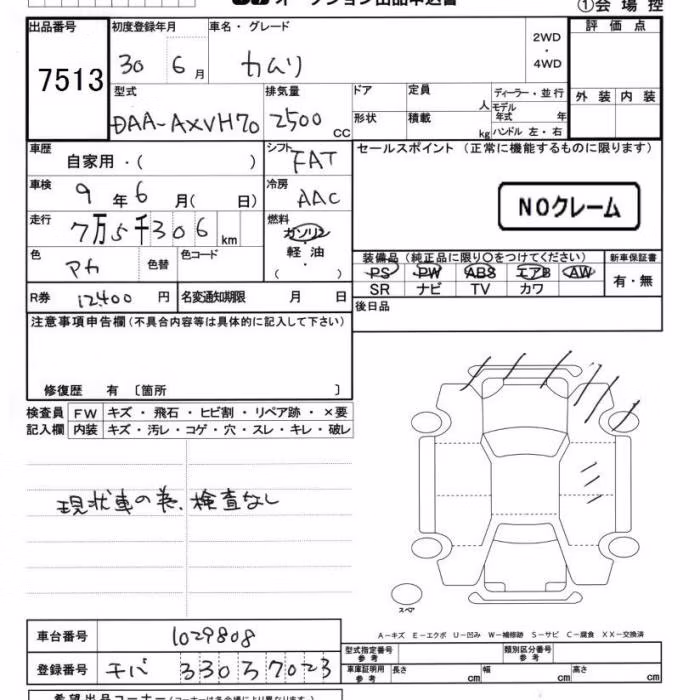 オークション出品申込書
①会場控
出品番号 初度登録年月 車名・グレード 2WD・4WD 評価点
7513 30 6月 カムリ
型式 排気量 ドア 定員 人 ディーラー・並行 モデル年式 年 外装 内装
DAA-AXVH70 2500 cc 形状 積載 kg ハンドル 左・右
車歴 自家用・( ) シフト FAT セールスポイント (正常に機能するものに限ります)
車検 9年6月( 日) 冷房 AAC
NOクレーム
走行 7万5千306km 燃料 ガソリン・軽油・( )
色 アカ 色替 色コード
装備品 (純正品に限り○をつけてください) 新車保証書
PS PW ABS エアB AW 有・無
SR ナビ TV カワ
R券 12400円 名変通知期限 月 日
後日品
注意事項申告欄(不具合内容等は具体的に記入して下さい)
修復歴 有 〔箇所 〕
検査員 FW キズ・飛石・ヒビ割・リペア跡・×要
記入欄 内装 キズ・汚レ・コゲ・穴・スレ・キレ・破レ
現状車の為、検査なし
スペア
A-キズ E-エクボ U-凹み W-補修跡 S-サビ C-腐食 XX-交換済
車台番号 1029808
型式指定番号 参考 類別区分番号 参考
登録番号 チバ 330 ス 7023
車庫証明用 参考 長さ cm 幅 cm 高さ cm
希望出品コーナー(コーナーは各会場により異なります。)